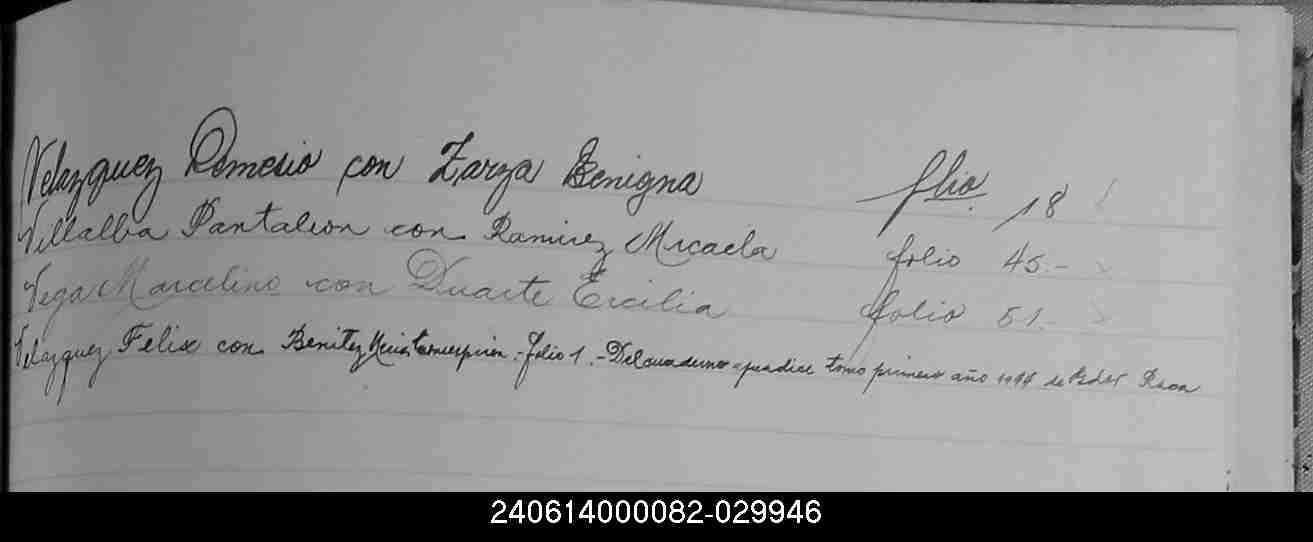 Velazquez Remesio con Zarza Benigna folio 18
Villalba Pantaleon con Ramirez Micaela folio 45.-
Vega Marcelino con Duarte Ercilia folio 51.-
Velazquez Felix con Benitez Concepcion.- folio 1.- Del cuaderno apendice tomo primero año de
240614000082-029946